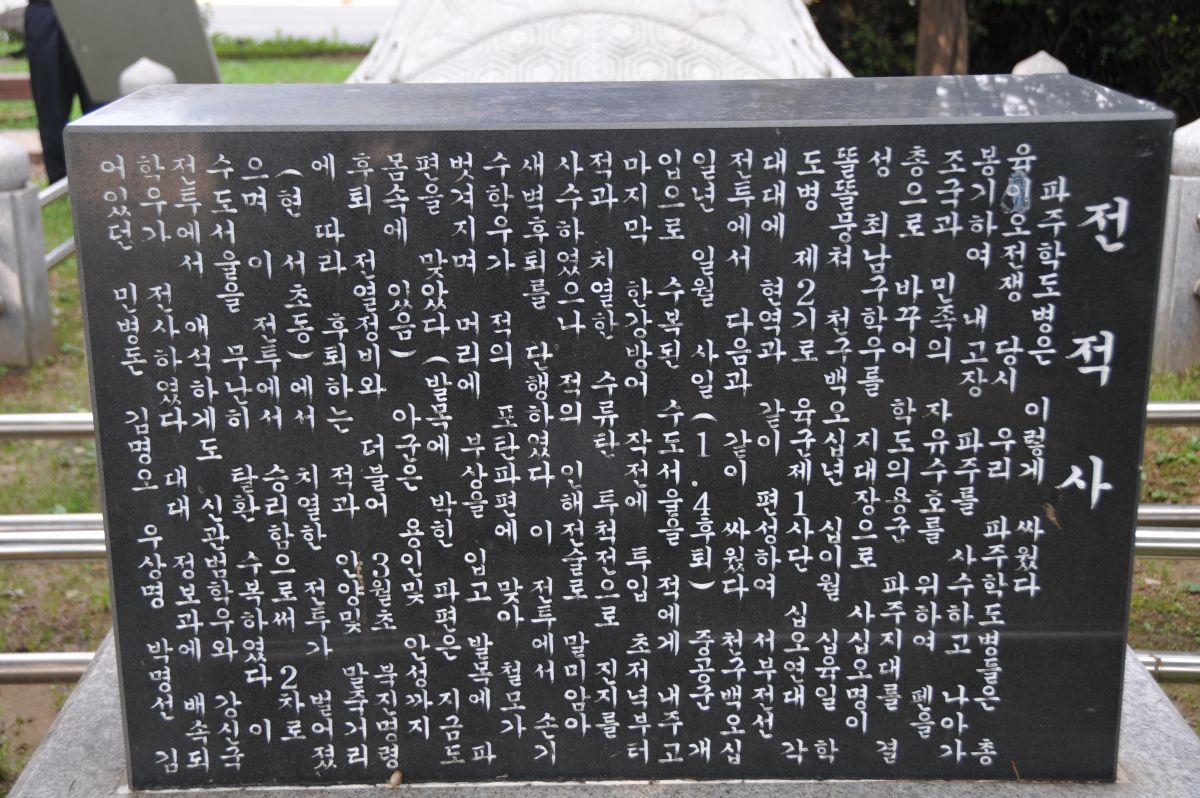 전적사
파주학도병은 이렇게 싸웠다
육이오전쟁 당시 우리 파주학도병들은 총
봉기하여 내고장 파주를 사수하고 나아가
조국과 민족의 자유수호를 위하여 펜을
총으로 바꾸어 학도의용군 파주지대를 결
성 최남구학우를 지대장으로 사십오명이
똘똘뭉쳐 천구백오십년 십이월 십육일 학
도병 제2기로 육군제1사단 십오연대 각
대대에 현역과 같이 편성하여 서부전선
전투에서 다음과 같이 싸웠다 천구백오십
일년 일월 사일(1.4후퇴) 중공군 개
입으로 수복된 수도서울을 적에게 내주고
마지막 한강방어 작전에 투입 초저녁부터
적과 치열한 수류탄 투척전으로 진지를
사수하였으나 적의 인해전술로 말미암아
새벽후퇴를 단행하였다 이 전투에서 손기
수학우가 적의 포탄파편에 맞아 철모가
벗겨지며 머리에 부상을 입고 발목에 파
편을 맞았다(발목에 박힌 파편은 지금도
몸속에 있음) 아군은 용인및 안성까지
후퇴 전열정비와 더불어 3월초 북진명령
에 따라 후퇴하는 적과 안양및 말죽거리
(현 서초동)에서 치열한 전투가 벌어졌
으며 이 전투에서 승리함으로써 2차로
수도서울을 무난히 탈환 수복하였다 이
전투에서 애석하게도 신관범학우와 강신국
학우가 전사하였다 대대 정보과에 배속되
어있던 민병돈 김명오 우상명 박명선 김